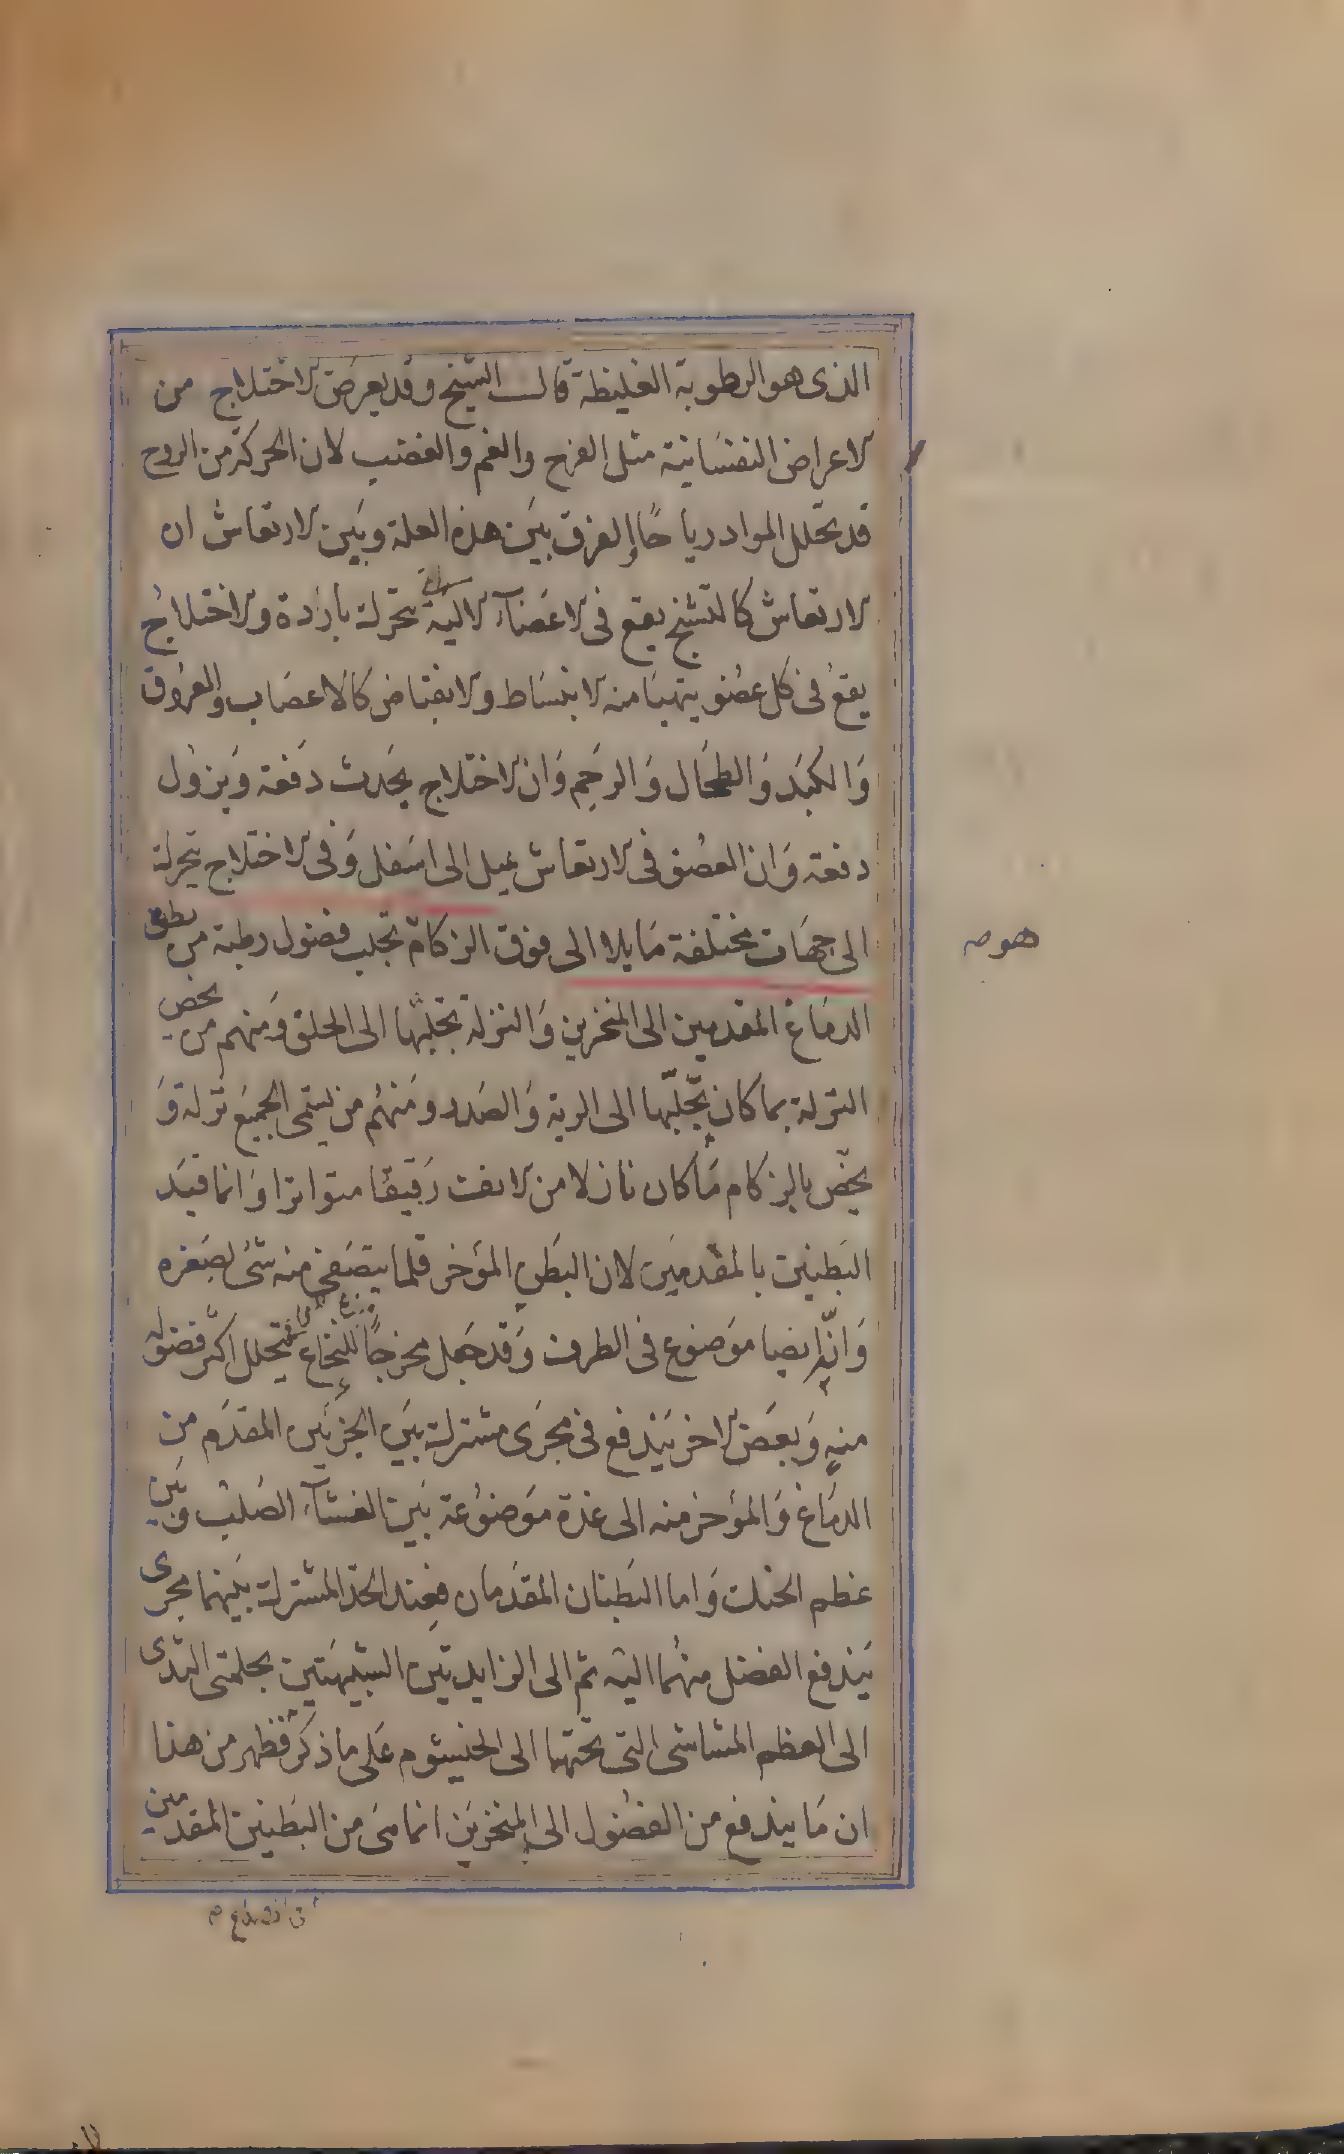 الذى هو الرطوبة الغليظة قالـ الشيخ وقد يعرض الاختلاج من
الاعراض النفسانية مثل الفرح والغم والغضب لان الحركة من الروح
قد تحلل المواد رياحًا الفرق بين هذه العلة وبين الارتعاش ان
الارتعاش كالتشنج يقع فى الاعضآء الالية بحركة بارادة والاختلاج
يقع فى كل عضو يتهيا منه الانبساط والانقباض كالاعصاب والعروق
والكبد والطحال والرحم وان الاختلاج يحدث دفعة ويزول
دفعة وان العضو فى الارتعاش يميل الى اسفل وفى الاختلاج يتحرك
الى جهات مختلفة مايلا الى فوق الزكام تجلب فضول رطبة من بطنى
الدماغ المقدمين الى المنخرين والنزلة تجلبها الى الحلق ومنهم من يخص
النزلة بما كان تجلبها الى الرية والصدر ومنهم من يسمى الجميع نزلة و
يخص بالزكام ما كان نازلا من الانف رقيقا متواترا وانما قيد
البطنين بالمقدمين لان البطن المؤخر قلما يتصفى منه شئ لصغره
وانه ايضا موضوع فى الطرف وقد جعل مخرجًا للنخاع يتحلل اكثر فضوله
منه وبعض الاخر يندفع فى مجرى مشترك بين الجزئين المقدم من
الدماغ والمؤخر منه الى غدة موضوعة بين الغشآء الصلب وبين
عظم الحنك واما البطنان المقدمان فعند الحد المشترك بينهما مجرى
يندفع الفضل منهما اليه ثم الى الزايدتين الشبيهتين بحلمتى الثدى
الى العظم المشاشى التى تحتها الى الخيشوم على ما ذكر فظهر من هذا
ان ما يندفع من الفضول الى المنخرين انما هى من البطنين المقدمين